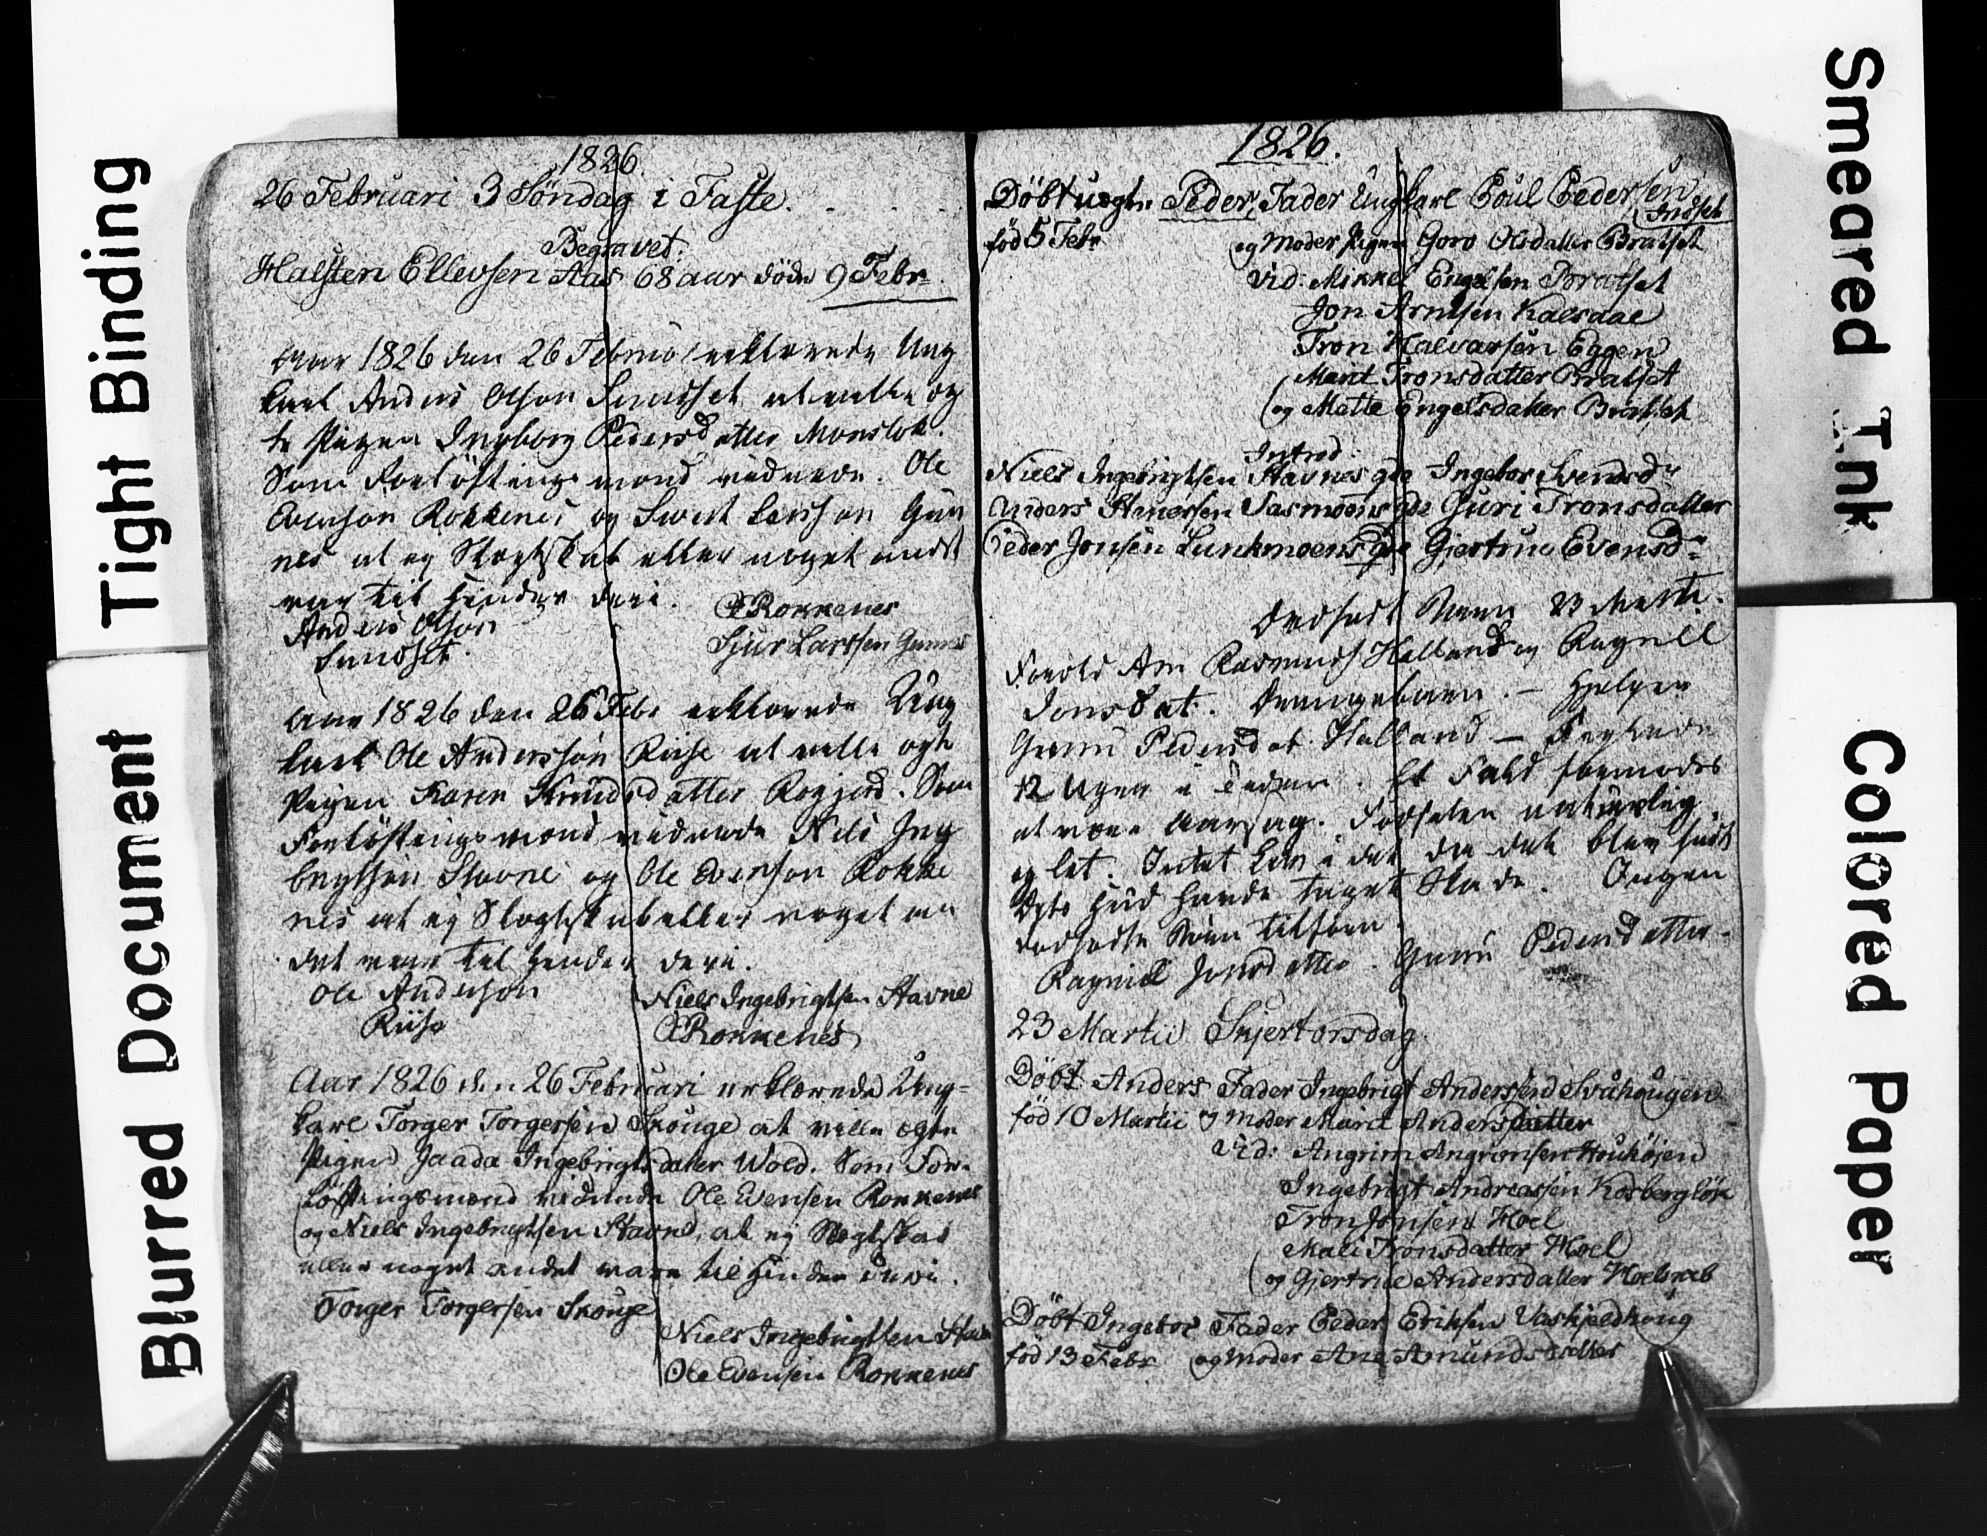 Tight Binding
Blurred Document
Smeared Ink
Colored Paper
1826.
26 Februari 3 Söndag i Faste.
Begravet.
Halsten Ellevsen Aas 68 aar döde 9 Febr.
Aar 1826 den 26 Februar erklærede Ung
karl Anders Olson Sundset at ville æg
te Pigen Ingborg Pedersdatter Monslok.
Som Forlöftningsmænd vidnede. Ole
Evenson Rokkenes og Siurt Larsson Gun
nes at ey Slegtskab eller noget andet
var til Hinder deri.
Anders Olson
Sundset.
OE Rokkenes
Sjur Larssen Gunnes
Aar 1826 den 26 Febr erklærede Ung
karl Ole Andersson Riise at ville ægte
Pigen Karen Knudsdatter Rogjerd. Som
Forlöftningsmænd vidnede Nils Inge
brigtsen Stavne og Ole Evenson Rokke
nes at ey Slegtskab eller noget an
det var til Hinder deri.
Ole Anderson
Riise
Niels Ingebrigtsen Stavne
OE Rokkenes
Aar 1826 den 26 Februari erklærede Ung-
karl Torger Torgersen Skouge at ville ægte
Pigen Jaada Ingebrigtsdatter Wold. Som For-
löftningsmænd vidnede Ole Evensen Rokkenes
og Niels Ingebrigtsen Stavne, at ey Slegtskab
eller noget andet være til Hinder deri.
Torger Torgersen Skouge
Niels Ingebrigtsen Stavne
Ole Evensen Rokkenes
1826.
Döbt uegte Peder, Fader Ungkarl Poul Pedersen
Indset
föd 5 Febr og Moder Pigen Goro Olsdatter Bratset
Vid: Mikkel Engelsen Bratset
Jon Arntsen Kalsdae
Tron Halvarsen Eggen
Marit Tronsdatter Bratset
og Mette Engelsdatter Bratset
Introd.
Niels Ingebrigtsen Stavnes qde Ingebor Svendsdr
Anders Stenersen Vasmoens qde Guri Tronsdatter
Peder Jonsen Lunkmoens qde Gjertrud Evensdr
Dødfødt 23 Marti.
Forældr Arn Rasmus Halland og Ragnill
Jonsdat. Drængebarn. - Hjelper
Guru Pedersdat Halland -
12 Uger i Tiden. Et Fald formodes
at være Aarsag. Födselen naturlig
og let. Intet Liv i det da det blev födt
Dets Hud havde taget Skade. Ingen
dødfødte tilforn.
Ragnild Jonsdatter. Guru Pedersdatter.
23 Martii Skjertorsdag.
Döbt Anders Fader Ingebrigt Andersen Svåhougen
föd 10 Martii og Moder Marit Andersdatter
Vid: Angrim Angrimsen Houkåsen
Ingebrigt Andreassen Kosberglök
Tron Jonsen Hoel
Mali Tronsdatter Hoel
og Gjertrue Andersdatter Hoelsneb
Döbt Ingebor Fader Peder Eriksen Vaskjeldhoug
föd 13 Febr og Moder Ane Amundsdatter